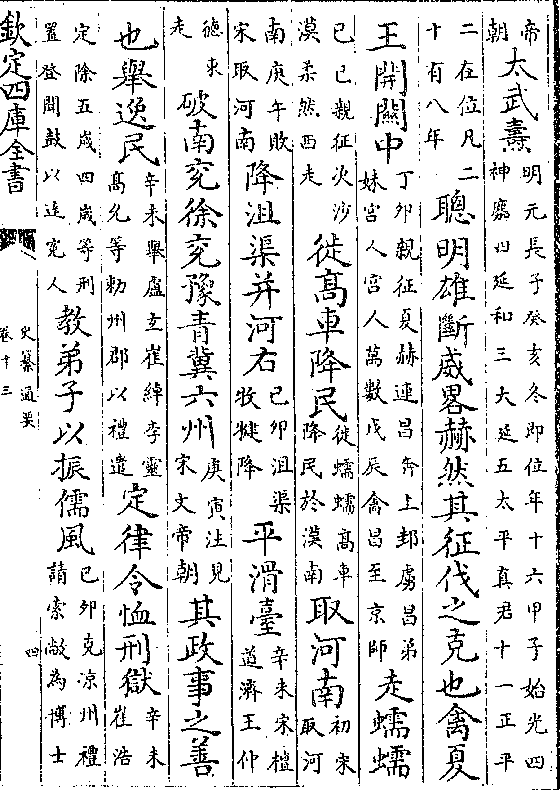 帝朝太武燾明元長子癸亥冬即位年十六甲子始光四神䴥四延和三大延五太平真君十一正平
二在位凡二十有八年聰明雄斷威畧赫然其征伐之克也禽夏
王開關中丁卯親征夏赫連昌奔上邽虜昌弟妹宮人宮人萬數戊辰禽昌至京師走蠕蠕
己巳親征次沙漠柔然西走徙高車降民徙蠕蠕高車降民於漠南取河南初宋取河
南庚午敗宋取河南降沮渠并河右己卯沮渠牧犍降平滑臺辛未宋檀道濟王仲
德東走破南兖徐兖豫青冀六州庚寅注見宋文帝朝其政事之善
也舉逸民辛未舉盧玄崔綽李靈高允等勅州郡以禮遣定律令恤刑獄辛未崔浩
定除五歲四歲等刑置登聞鼓以達寃人教弟子以振儒風己卯克涼州禮請索敞為博士
欽定四庫全書
史纂通要
卷十三
四